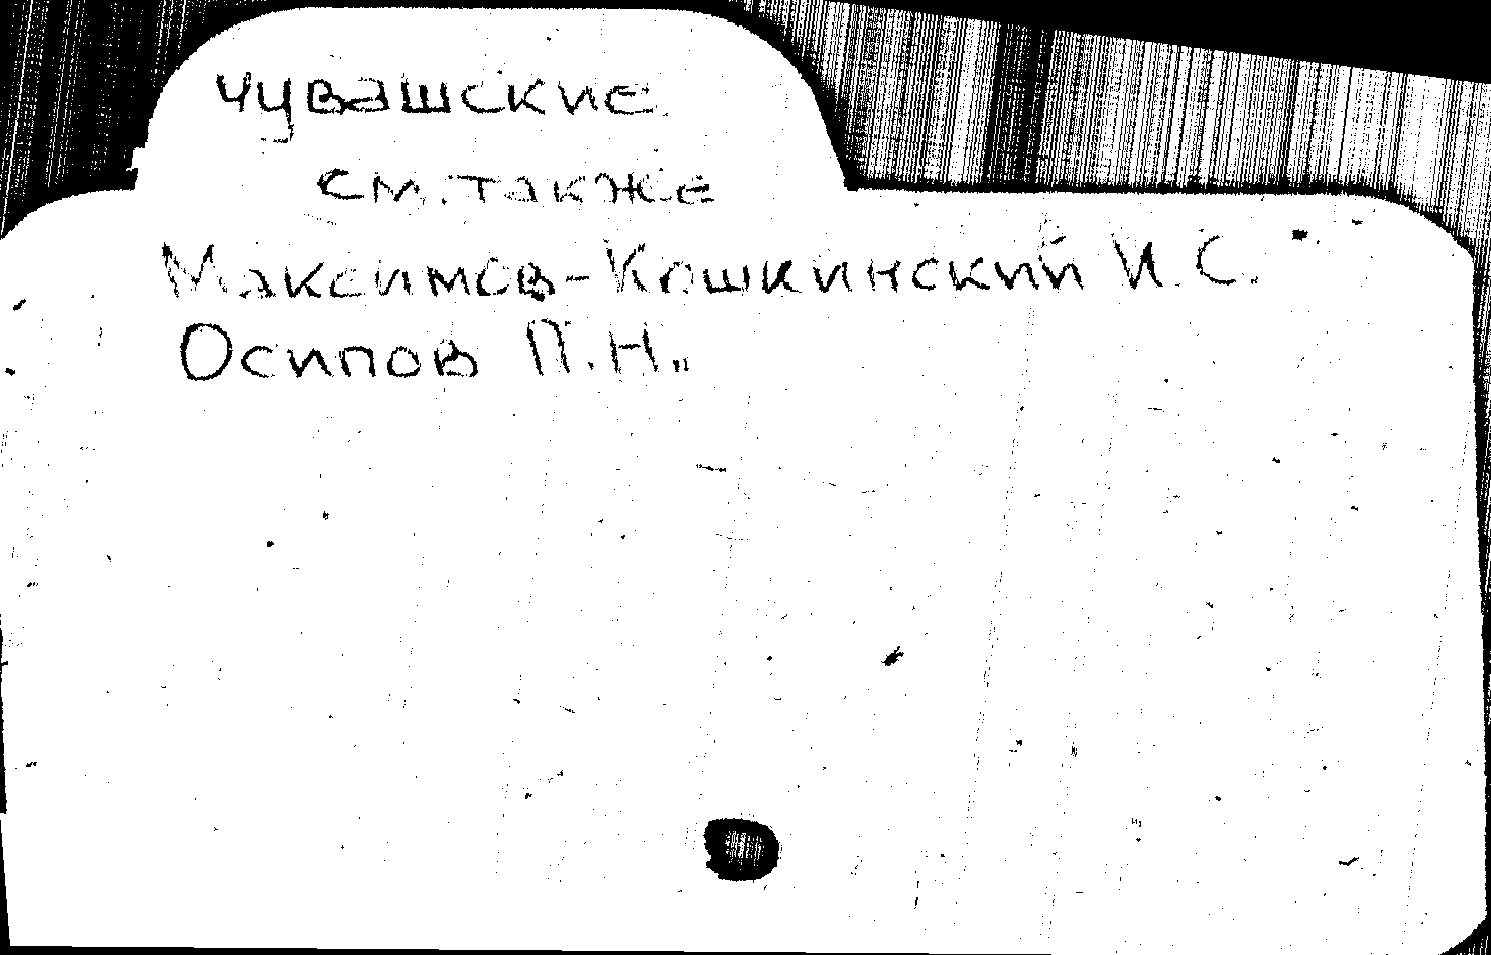 чувашские
см. также
Максимов-Кошкинский И.С.
Осипов П.Н.